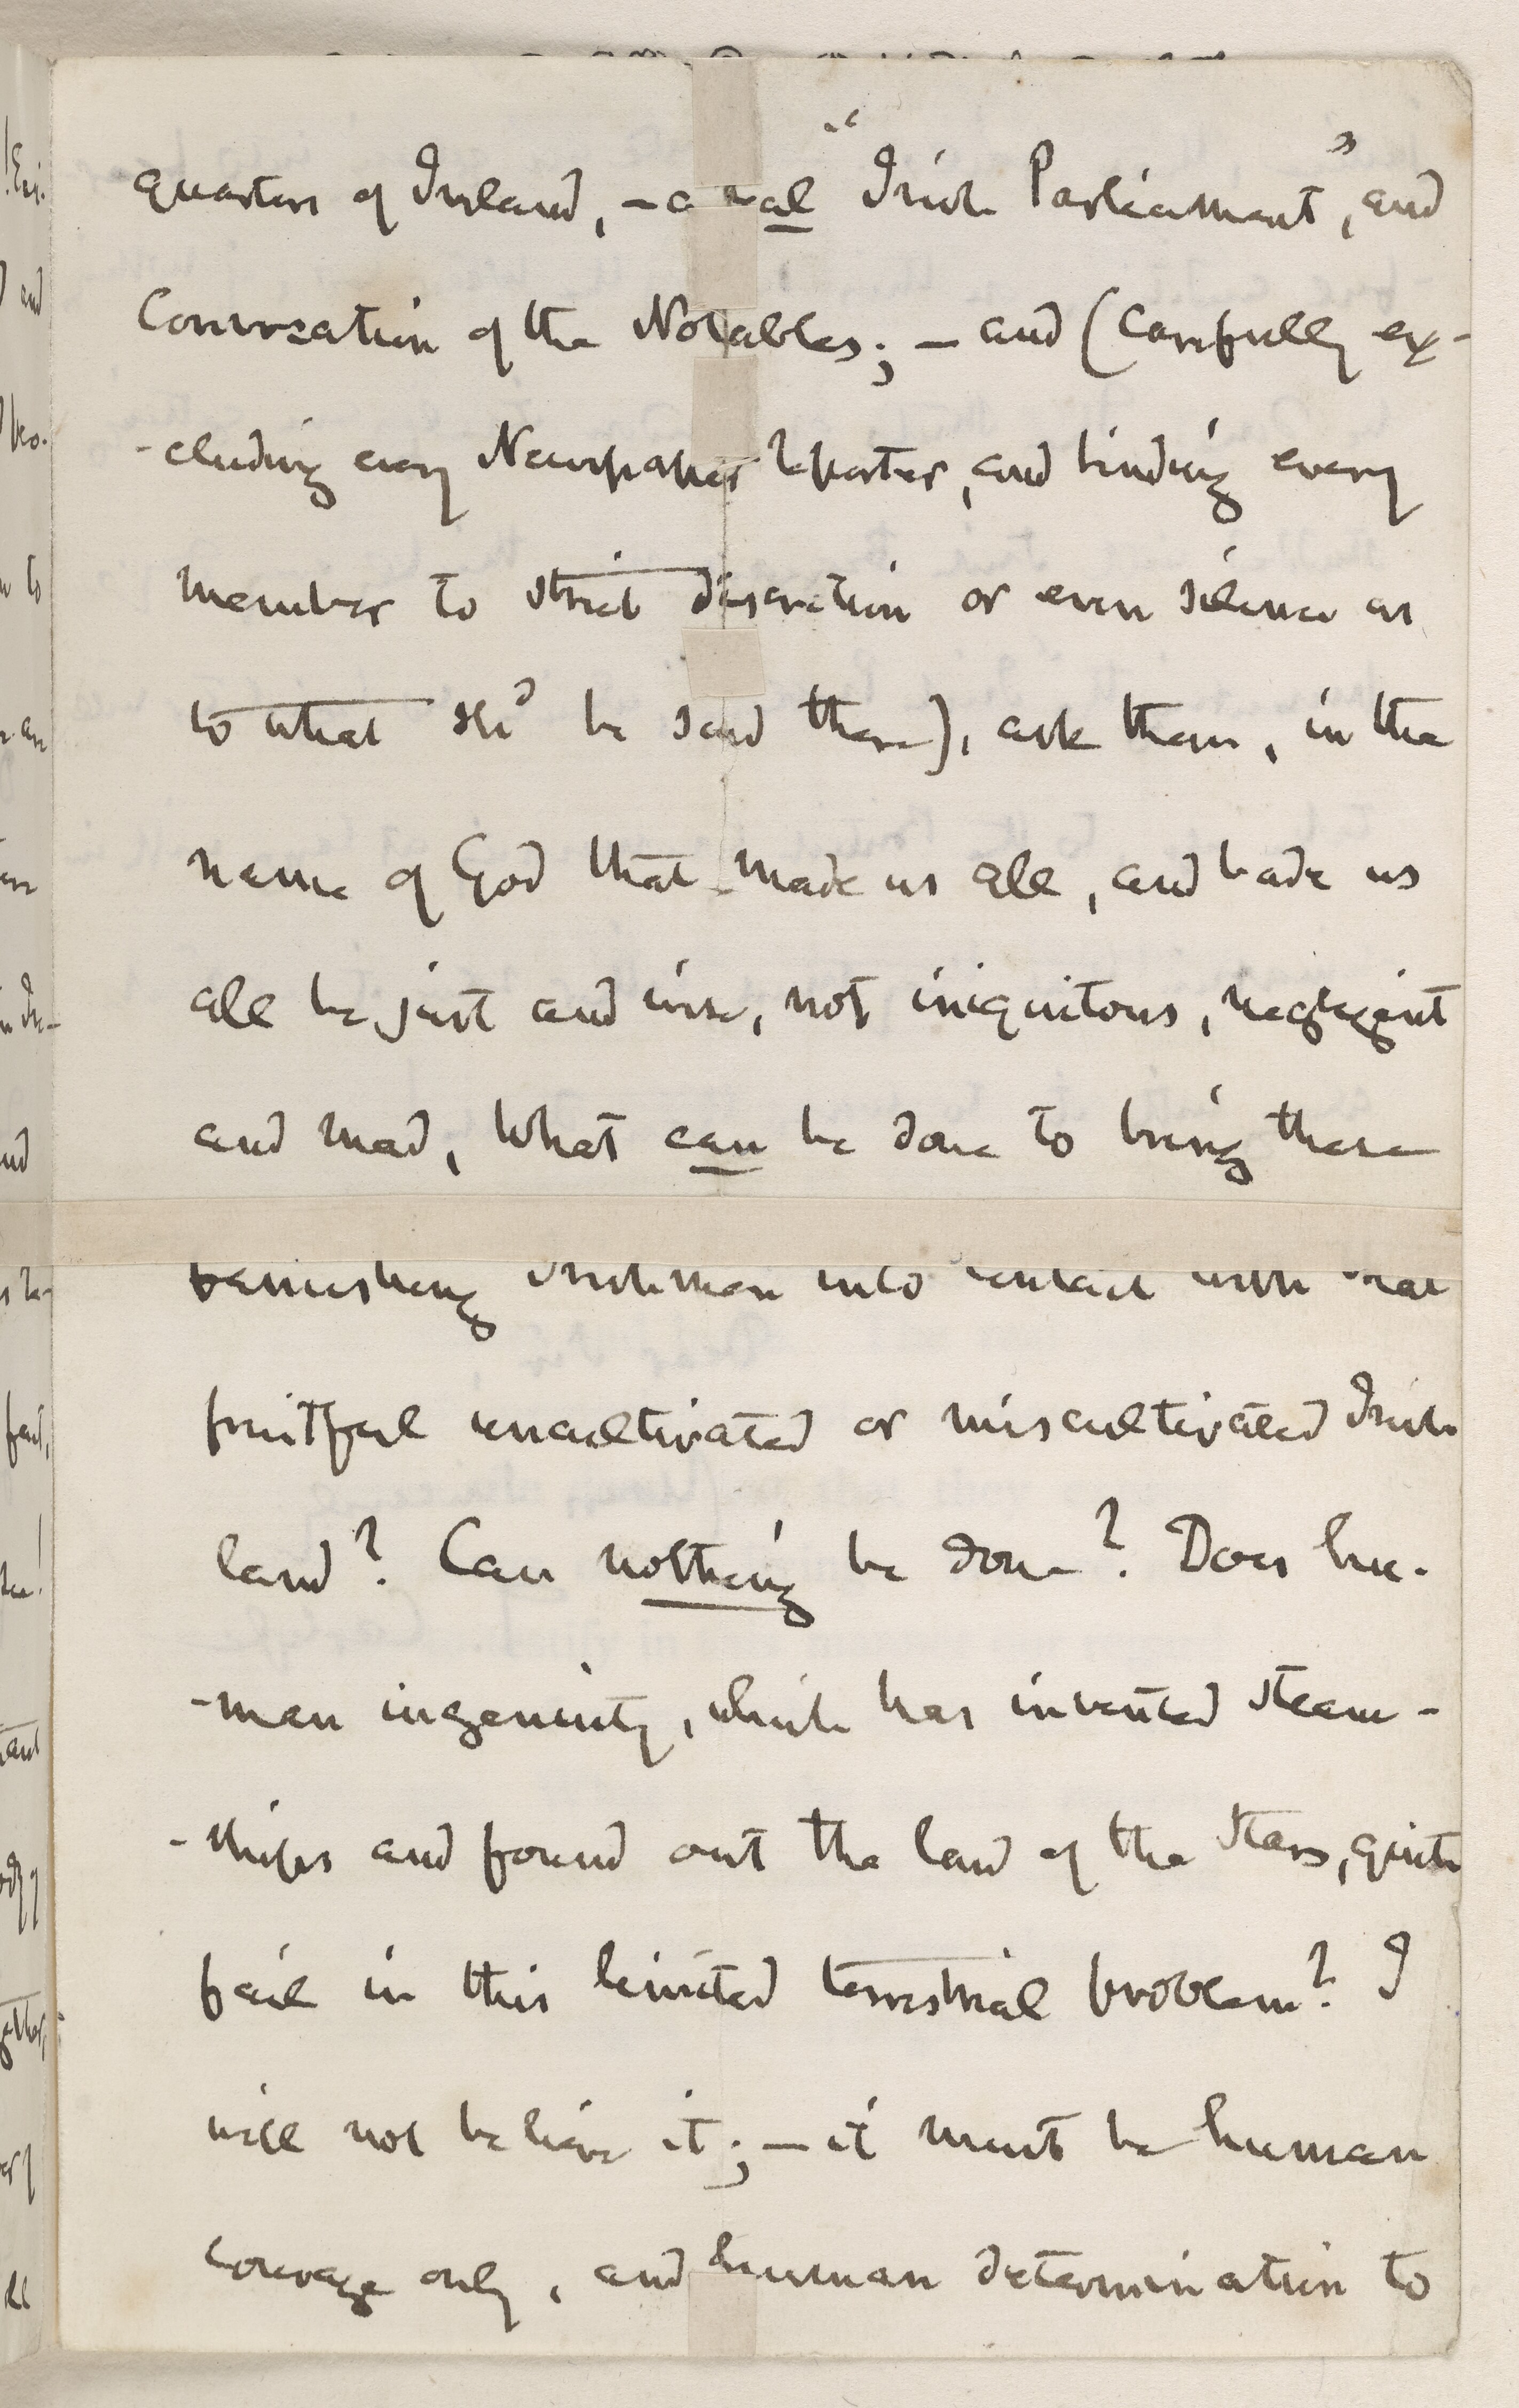 quarters of Ireland, – a real "Irish Parliament", and
Conversation of the Notables; – and (carefully ex-
-cluding every Newspaper Reporter, and binding every
member to strict discretion or even silence as
to what shd be said there), ask them, in the
name of God that made us all, and bade us
all be just and wise, not iniquitous, negligent
and mad, What can be done to bring these
famishing Irishmen into contact with that
fruitful uncultivated or miscultivated Irish
land? Can nothing be done? Does hu-
-man ingenuity, which has invented steam-
-ships and found out the law of the stars, quite
fail in this limited terrestrial problem? I
will not believe it; – it must be human
courage only, and human determination to